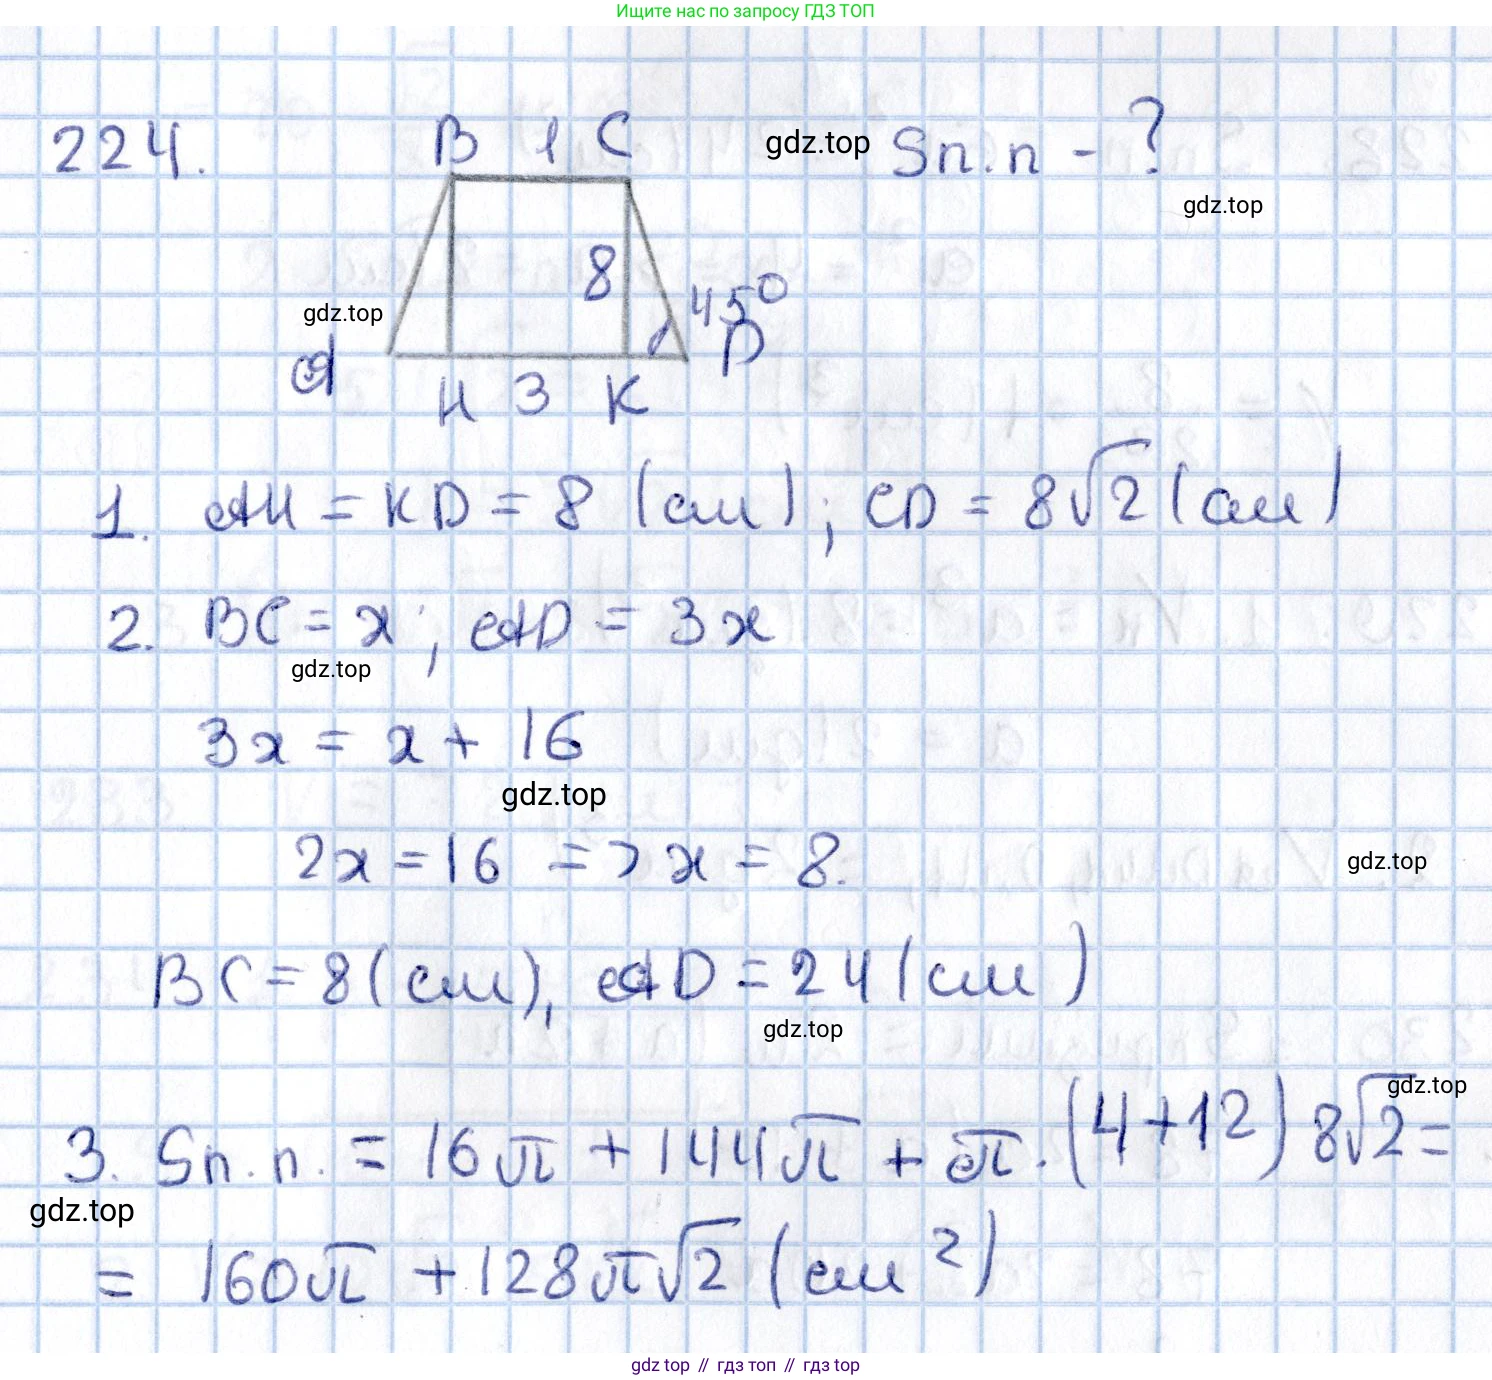 Ищите нас по запросу ГДЗ ТОП
224. B 1 C gdz.top Sп.п - ?
gdz.top
8
gdz.top 45°
A D
H 3 K
1. AH = KD = 8 (см); CD = 8√2 (см)
2. BC = x; AD = 3x
gdz.top
3x = x + 16
gdz.top
2x = 16 => x = 8.
gdz.top
BC = 8 (см), AD = 24 (см)
gdz.top
gdz.top
3. Sп.п. = 16π + 144π + π · (4+12) 8√2 =
gdz.top
= 160π + 128π√2 (см²)
gdz top // гдз топ // gdz top